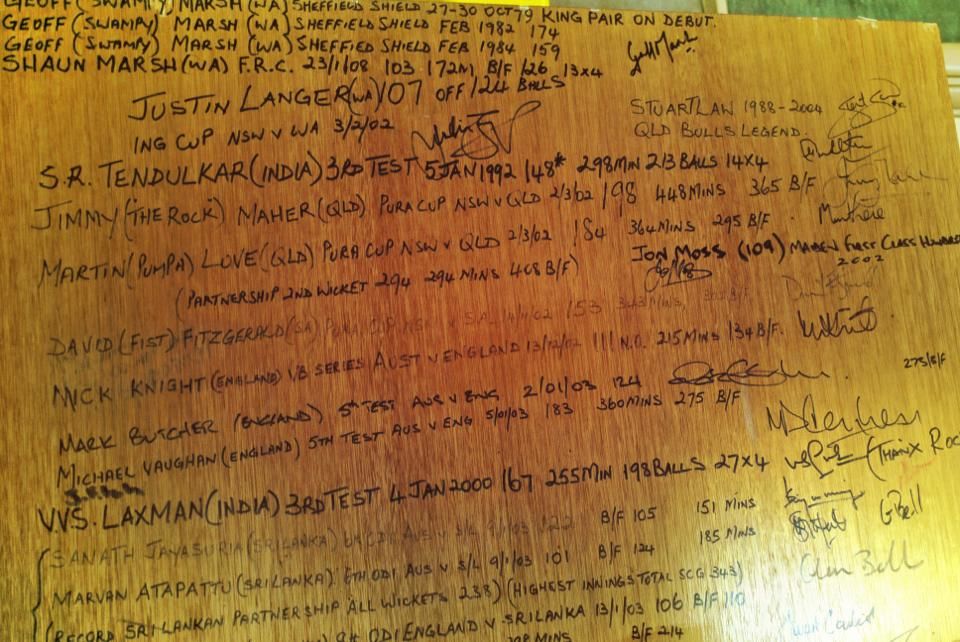 GEOFF (SWAMPY) MARSH (WA) SHEFFIELD SHIELD 27-30 OCT 79 KING PAIR ON DEBUT.
GEOFF (SWAMPY) MARSH (WA) SHEFFIELD SHIELD FEB 1982 174
GEOFF (SWAMPY) MARSH (WA) SHEFFIELD SHIELD FEB 1984 159
SHAUN MARSH (WA) F.R.C. 23/1/08 103 172M B/F 126 13x4
JUSTIN LANGER (WA) 107 OFF 124 BALLS
ING CUP NSW V WA 3/2/02
STUART LAW 1988-2004
QLD BULLS LEGEND.
S.R. TENDULKAR (INDIA) 3RD TEST 5 JAN 1992 148* 298MIN 213 BALLS 14x4
JIMMY ("THE ROCK") MAHER (QLD) PURA CUP NSW V QLD 2/3/02 198 448 MINS 365 B/F
MARTIN (PUMPA) LOVE (QLD) PURA CUP NSW V QLD 2/3/02 184 364 MINS 295 B/F
(PARTNERSHIP 2ND WICKET 294 294 MINS 408 B/F)
JON MOSS (109) MAIDEN FIRST CLASS HUNDRED
2002
DAVID (FIST) FITZGERALD (SA) PURA CUP NSW V SA 153 343 MINS B/F
MICK KNIGHT (ENGLAND) VB SERIES AUST V ENGLAND 13/12/02 111 N.O. 215 MINS 134 B/F.
MARK BUTCHER (ENGLAND) 5th TEST AUS V ENG 2/01/03 124
275/B/F
MICHAEL VAUGHAN (ENGLAND) 5TH TEST AUS V ENG 5/01/03 183 360 MINS 275 B/F
VVS. LAXMAN (INDIA) 3RD TEST 4 JAN 2000 167 255 MIN 198 BALLS 27x4
(THANX ROC
SANATH JAYASURIA (SRI LANKA) ODI AUS V S/L 9/1/03 122 B/F 105 151 MINS
MARVAN ATAPATTU (SRI LANKA). 6TH ODI AUS V S/L 9/1/03 101 B/F 124 185 MINS
G Bell
(RECORD SRI LANKAN PARTNERSHIP ALL WICKETS 238) (HIGHEST INNINGS TOTAL SCG 343)
ODI ENGLAND V SRI LANKA 13/1/03 106 B/F 110
MINS B/F 214